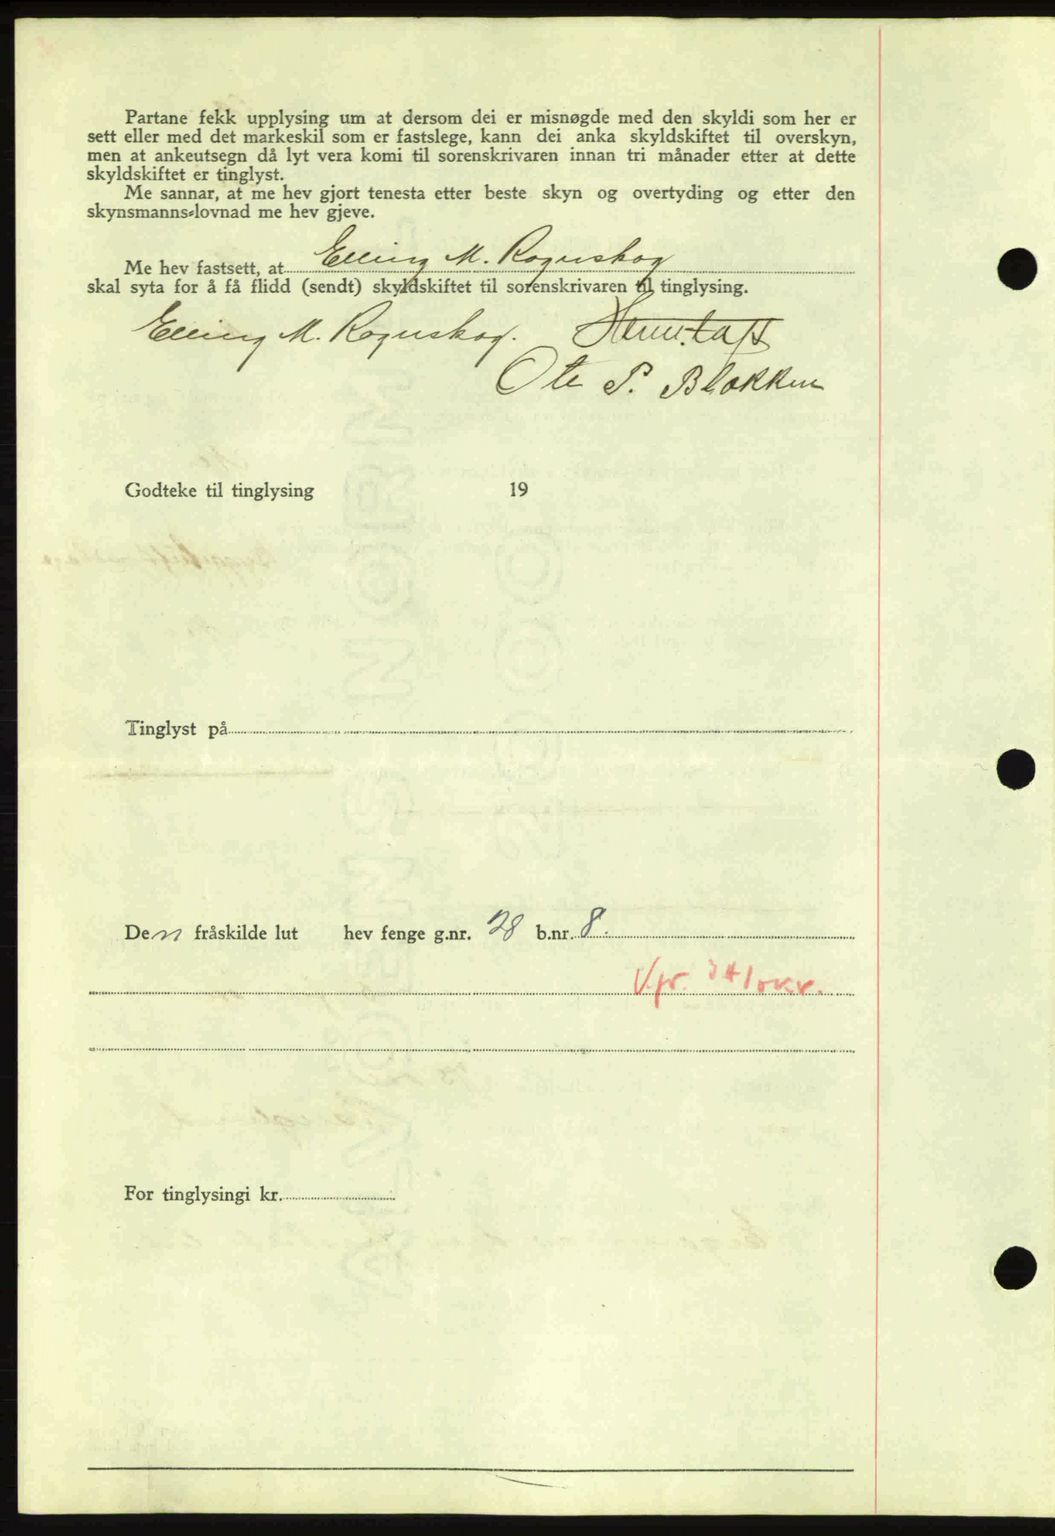 Partane fekk upplysing um at dersom dei er misnøgde med den skyldi som her er
sett eller med det markeskil som er fastslege, kann dei anka skyldskiftet til overskyn,
men at ankeutsegn då lyt vera komi til sorenskrivaren innan tri månader etter at dette
skyldskiftet er tinglyst.
Me sannar, at me hev gjort tenesta etter beste skyn og overtyding og etter den
skynsmanns-lovnad me hev gjeve.
Me hev fastsett, at Elling M. Rognskog
skal syta for å få flidd (sendt) skyldskiftet til sorenskrivaren til tinglysing.
Elling M. Rognskog.
Ole P. Blækken
Godteke til tinglysing 19
Tinglyst på
Den fråskilde lut hev fenge g.nr. 28 b.nr. 8.
V.pr.
For tinglysingi kr.